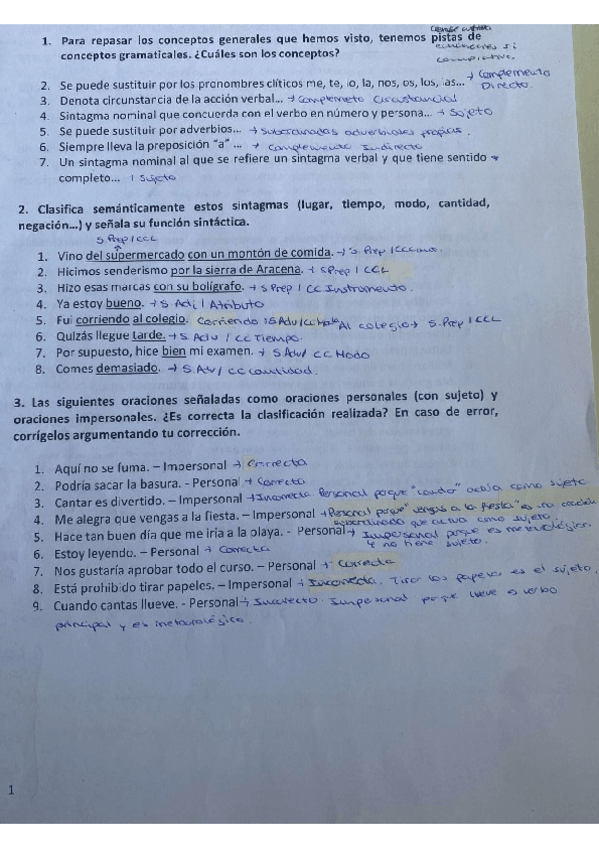 1. Para repasar los conceptos generales que hemos visto, tenemos pistas de
conceptos gramaticales. ¿Cuáles son los conceptos?
2. Se puede sustituir por los pronombres clíticos me, te, lo, la, nos, os, los, las... → Complemento
Directo.
3. Denota circunstancia de la acción verbal... → Complemeto Circustancial
4. Sintagma nominal que concuerda con el verbo en número y persona... → Sojeto
5. Se puede sustituir por adverbios... → Subordinadas adverbiales propias.
6. Siempre lleva la preposición "a" ... → Complemento Indirecto
7. Un sintagma nominal al que se refiere un sintagma verbal y que tiene sentido
completo... Sujeto
2. Clasifica semánticamente estos sintagmas (lugar, tiempo, modo, cantidad,
negación...) y señala su función sintáctica.
S Prep / CCL
1. Vino del supermercado con un montón de comida. → S Prep /
2. Hicimos senderismo por la sierra de Aracena. → S Prep / CCL
3. Hizo esas marcas con su bolígrafo. → S Prep / CC Instrumento.
4. Ya estoy bueno. → S Adj / Atributo
5. Fui corriendo al colegio. Corriendo: S Adv/CC Modo Al colegio → S. Prep / CCL
6. Quizás llegue tarde. → S Adv / CC Tiempo.
7. Por supuesto, hice bien mi examen. → S Adv / CC Modo
8. Comes demasiado. → S. Adv / CC Cantidad.
3. Las siguientes oraciones señaladas como oraciones personales (con sujeto) y
oraciones impersonales. ¿Es correcta la clasificación realizada? En caso de error,
corrígelos argumentando tu corrección.
1. Aquí no se fuma. – Impersonal → Correcta
2. Podría sacar la basura. - Personal → Correcta
3. Cantar es divertido. – Impersonal → Incorrecta Personal porque "cantar" actúa como sujeto
4. Me alegra que vengas a la fiesta. – Impersonal → Personal porque "vengas a la fiesta" es una oración
subordinada que actúa como sujeto.
5. Hace tan buen día que me iría a la playa. - Personal → Impersonal porque es meteorológico
y no tiene sujeto.
6. Estoy leyendo. – Personal → Correcta
7. Nos gustaría aprobar todo el curso. – Personal → Correcta
8. Está prohibido tirar papeles. – Impersonal → Incorrecta. Tirar los papeles es el sujeto.
9. Cuando cantas llueve. - Personal → Incorrecto. Impersonal porque llueve es verbo
principal y es meteorológico.
1